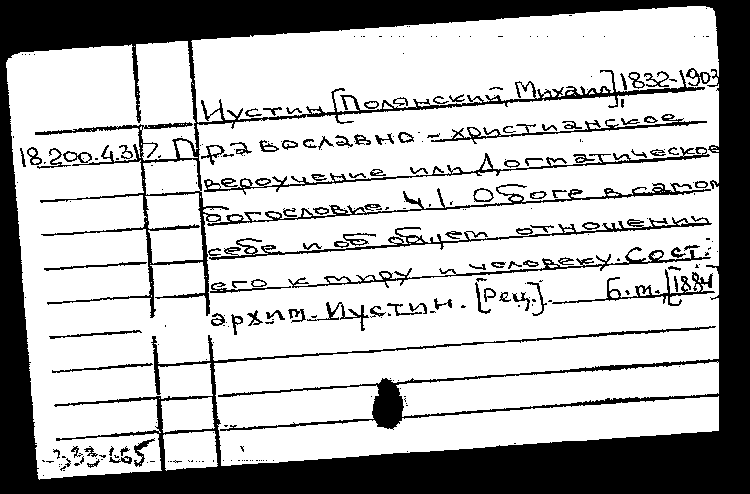 Иустин [Полянский, Михаил], 1832-1903
18.200.4.317. Православно-христианское
вероучение или Догматическое
богословие. Ч.1. О боге в самом
себе и об общем отношении
его к миру и человеку. Сост.:
архим. Иустин. [Рец.]. Б.м., [1884]
333-665